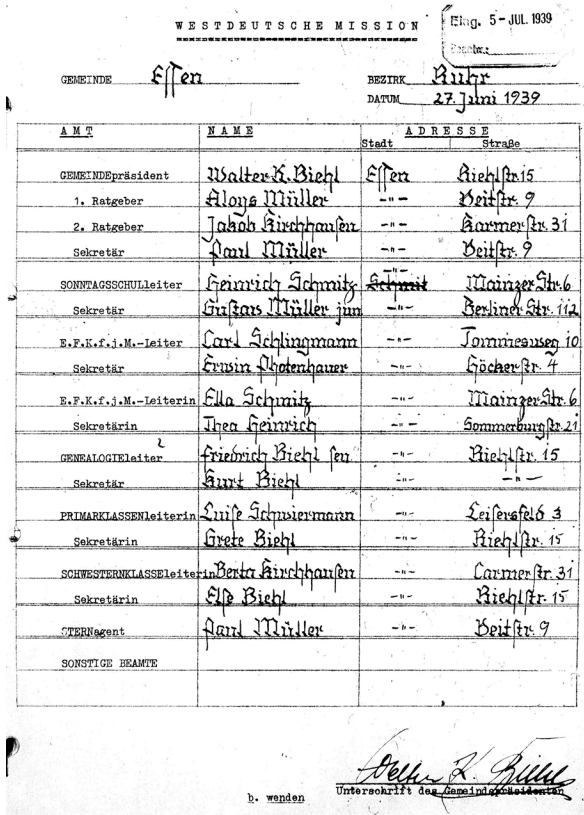 WESTDEUTSCHE MISSION
Eing. 5-JUL. 1939
GEMEINDE Essen BEZIRK Ruhr
DATUM 27. Juni 1939
AMT NAME ADRESSE
Stadt Straße
GEMEINDEpräsident Walter K. Biehl Essen Riehlstr. 15
1. Ratgeber Aloys Müller -"- Veitstr. 9
2. Ratgeber Jakob Kirchhausen -"- Karmerstr. 31
Sekretär Paul Müller -"- Veitstr. 9
SONNTAGSSCHULleiter Heinrich Schmitz -"- Schmit Mainzer Str. 6
Sekretär Gustav Müller jun -"- Berliner Str. 112
E.F.K.f.j.M.-Leiter Carl Schlingmann -"- Tommesweg 10
Sekretär Erwin Photenhauer -"- Höckerstr. 4
E.F.K.f.j.M.-Leiterin Ella Schmitz -"- Mainzer Str. 6
Sekretärin Thea Heinrich -"- Sommerburgstr. 21
GENEALOGIEleiter Friedrich Biehl sen -"- Riehlstr. 15
Sekretär Kurt Biehl -"- -"-
PRIMARKLASSENleiterin Luise Schwiermann -"- Leisersfeld 3
Sekretärin Grete Biehl -"- Riehlstr. 15
SCHWESTERNKLASSEleiterin Berta Kirchhausen -"- Carmerstr. 31
Sekretärin Else Biehl -"- Riehlstr. 15
STERNagent Paul Müller -"- Veitstr. 9
SONSTIGE BEAMTE
Walter K. Biehl
Unterschrift des Gemeindepräsidenten
b. wenden